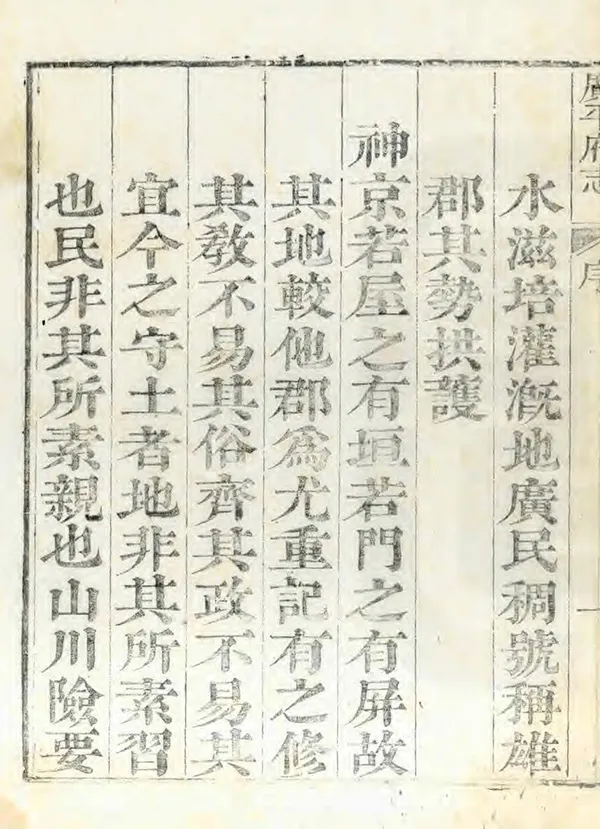 廣平府志
序
一
水滋培灌溉地廣民稠號稱雄
郡其勢拱護
神京若屋之有垣若門之有屏故
其地較他郡為尤重記有之修
其教不易其俗齊其政不易其
宜今之守土者地非其所素習
也民非其所素親也山川險要